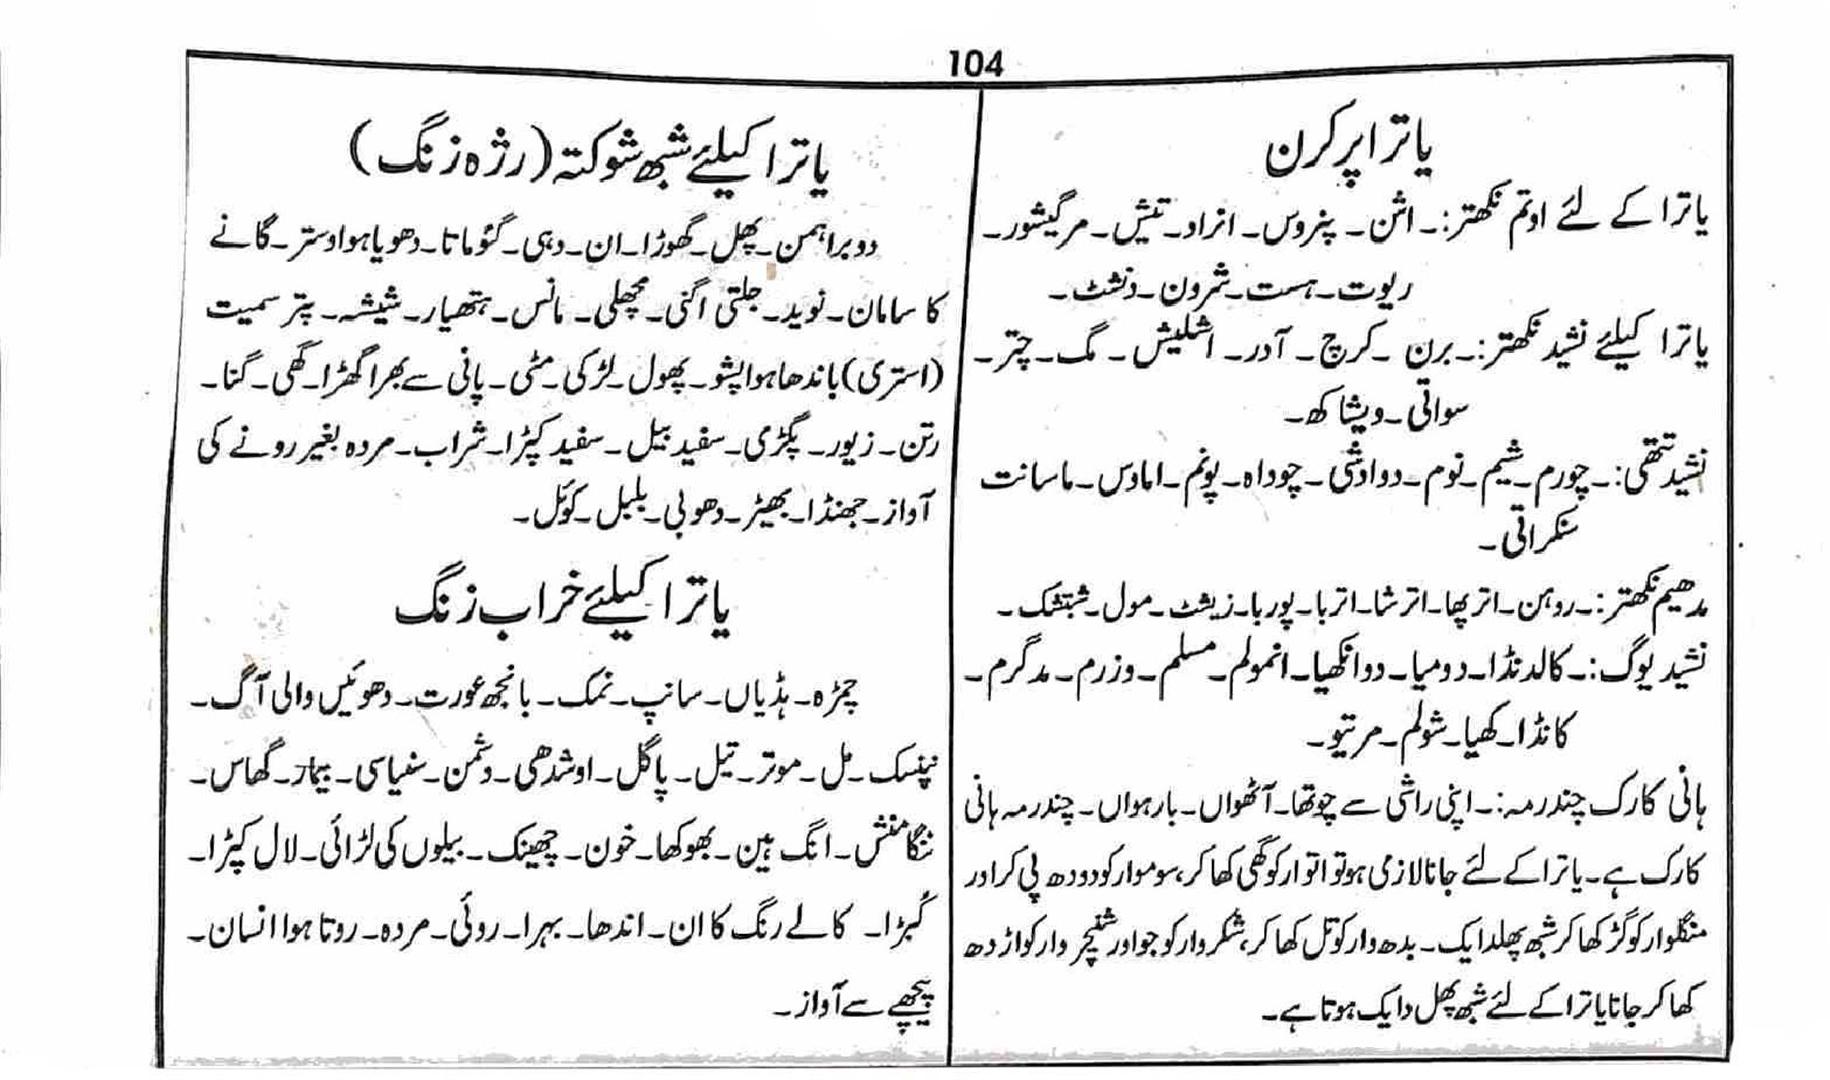 104
یاترا پرکرن
یاترا کے لئے اوتم نکھتر:۔ اشن۔ پنروس۔ انراد۔ تیش۔ مرگیشور۔
ریوت۔ ہست۔ شرون۔ دنشٹ۔
یاترا کیلئے نشید نکھتر:۔ برن ۔ کرچ۔ آدر۔ اشلیش ۔ مگ۔ چتر۔
سواتی۔ ویشاکھ۔
نشید تتھی:۔ چورم۔ شیم۔ نوم۔ دواوشی۔ چوداہ۔ پونم۔ اماوس۔ ماسانت
سنکراتی۔
مدھیم نکھتر:۔ روہن۔ اترپھا۔ اترشا۔ اتربا۔ پوربا۔ زیشٹ۔ مول۔ شبتشک۔
نشید یوگ:۔ کالدنڈا۔ دومیا۔ دوانکھیا۔ انمولم۔ مسلم۔ وزرم۔ مدگرم۔
کانڈا۔ کھیا۔ شولم۔ مرتیو۔
ہانی کارک چندرمہ:۔ اپنی راشی سے چوتھا۔ آٹھواں۔ بارہواں۔ چندرمہ ہانی
کارک ہے۔ یاترا کے لئے جانا لازمی ہو تو اتوار کو گھی کھا کر، سوموار کو دودھ پی کر اور
منگلوار کو گڑ کھا کر شبھ پھلدایک۔ بدھ وار کو تل کھا کر، شکروار کو جو اور شنیچر وار کو اڑدھ
کھا کر جانا یاترا کے لئے شبھ پھل دایک ہوتا ہے۔
یاترا کیلئے شبھ شوکتہ (رژہ زنگ)
دو براہمن۔ پھل۔ گھوڑا۔ ان۔ دہی۔ گئوماتا۔ دھویا ہوا وستر۔ گانے
کا سامان۔ نوید۔ جلتی اگنی۔ مچھلی۔ مانس۔ ہتھیار۔ شیشہ۔ پتر سمیت
(استری) باندھا ہوا پشو۔ پھول۔ لڑکی۔ مٹی۔ پانی سے بھرا گھڑا۔ گھی۔ گنا۔
رتن۔ زیور۔ پگڑی۔ سفید بیل۔ سفید کپڑا۔ شراب۔ مردہ بغیر رونے کی
آواز۔ جھنڈا۔ بھیڑ۔ دھوبی۔ بلبل۔ کوئل۔
یاترا کیلئے خراب زنگ
چمڑہ۔ ہڈیاں۔ سانپ۔ نمک۔ بانجھ عورت۔ دھوئیں والی آگ۔
نپنسک۔ مل۔ موتر۔ تیل۔ پاگل۔ اوشدھی۔ دشمن۔ سنیاسی۔ بیمار۔ گھاس۔
ننگا منش۔ انگ ہین۔ بھوکھا۔ خون۔ چھینک۔ بیلوں کی لڑائی۔ لال کپڑا۔
کُبڑا۔ کالے رنگ کا ان۔ اندھا۔ بہرا۔ روئی۔ مردہ۔ روتا ہوا انسان۔
پیچھے سے آواز۔